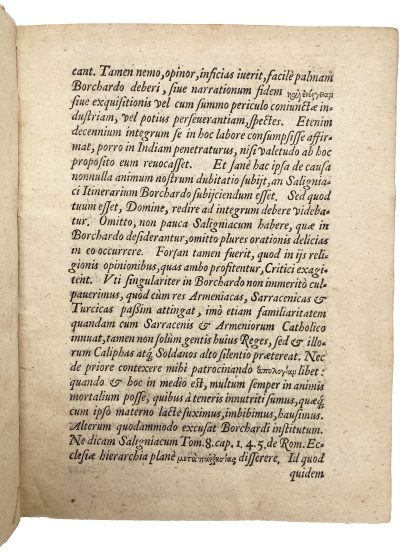 cant. Tamen nemo, opinor, inficias iuerit, facilè palmam
Borchardo deberi, siue narrationum fidem
siue exquisitionis vel cum summo periculo coniunctæ in-
dustriam, vel potius perseuerantiam, spectes. Etenim
decennium integrum se in hoc labore consumpsisse affir-
mat, porro in Indiam penetraturus, nisi valetudo ab hoc
proposito eum reuocasset. Et sanè hac ipsa de causa
nonnulla animum nostrum dubitatio subijt, an Salignia-
ci Itinerarium Borchardo subijciendum esset. Sed quod
tuum esset, Domine, redire ad integrum debere videba-
tur. Omitto, non pauca Saligniacum habere, quæ in
Borchardo desiderantur, omitto plures orationis delicias
in eo occurrere. Forsan tamen fuerit, quod in ijs reli-
gionis opinionibus, quas ambo profitentur, Critici exagi-
tent. Vti singulariter in Borchardo non immeritò cul-
pauerimus, quòd cùm res Armeniacas, Sarracenicas &
Turcicas passim attingat, imò etiam familiaritatem
quandam cum Sarracenis & Armeniorum Catholico
innuat, tamen non solùm gentis huius Reges, sed & illo-
rum Caliphas atq́; Soldanos alto silentio prætereat. Nec
de priore contexere mihi patrocinando ἀπολογίαμ libet:
quando & hoc in medio est, multum semper in animis
mortalium posse, quibus à teneris innutriti sumus, quæq́;
cum ipso materno lacte suximus, imbibimus, hausimus.
Alterum quodammodo excusat Borchardi institutum.
Ne dicam Saligniacum Tom. 8. cap. 1. 4. 5. de Rom. Ec-
clesiæ hierarchia planè μετὰ παῤῥησίας disserere. Id quod
quidem